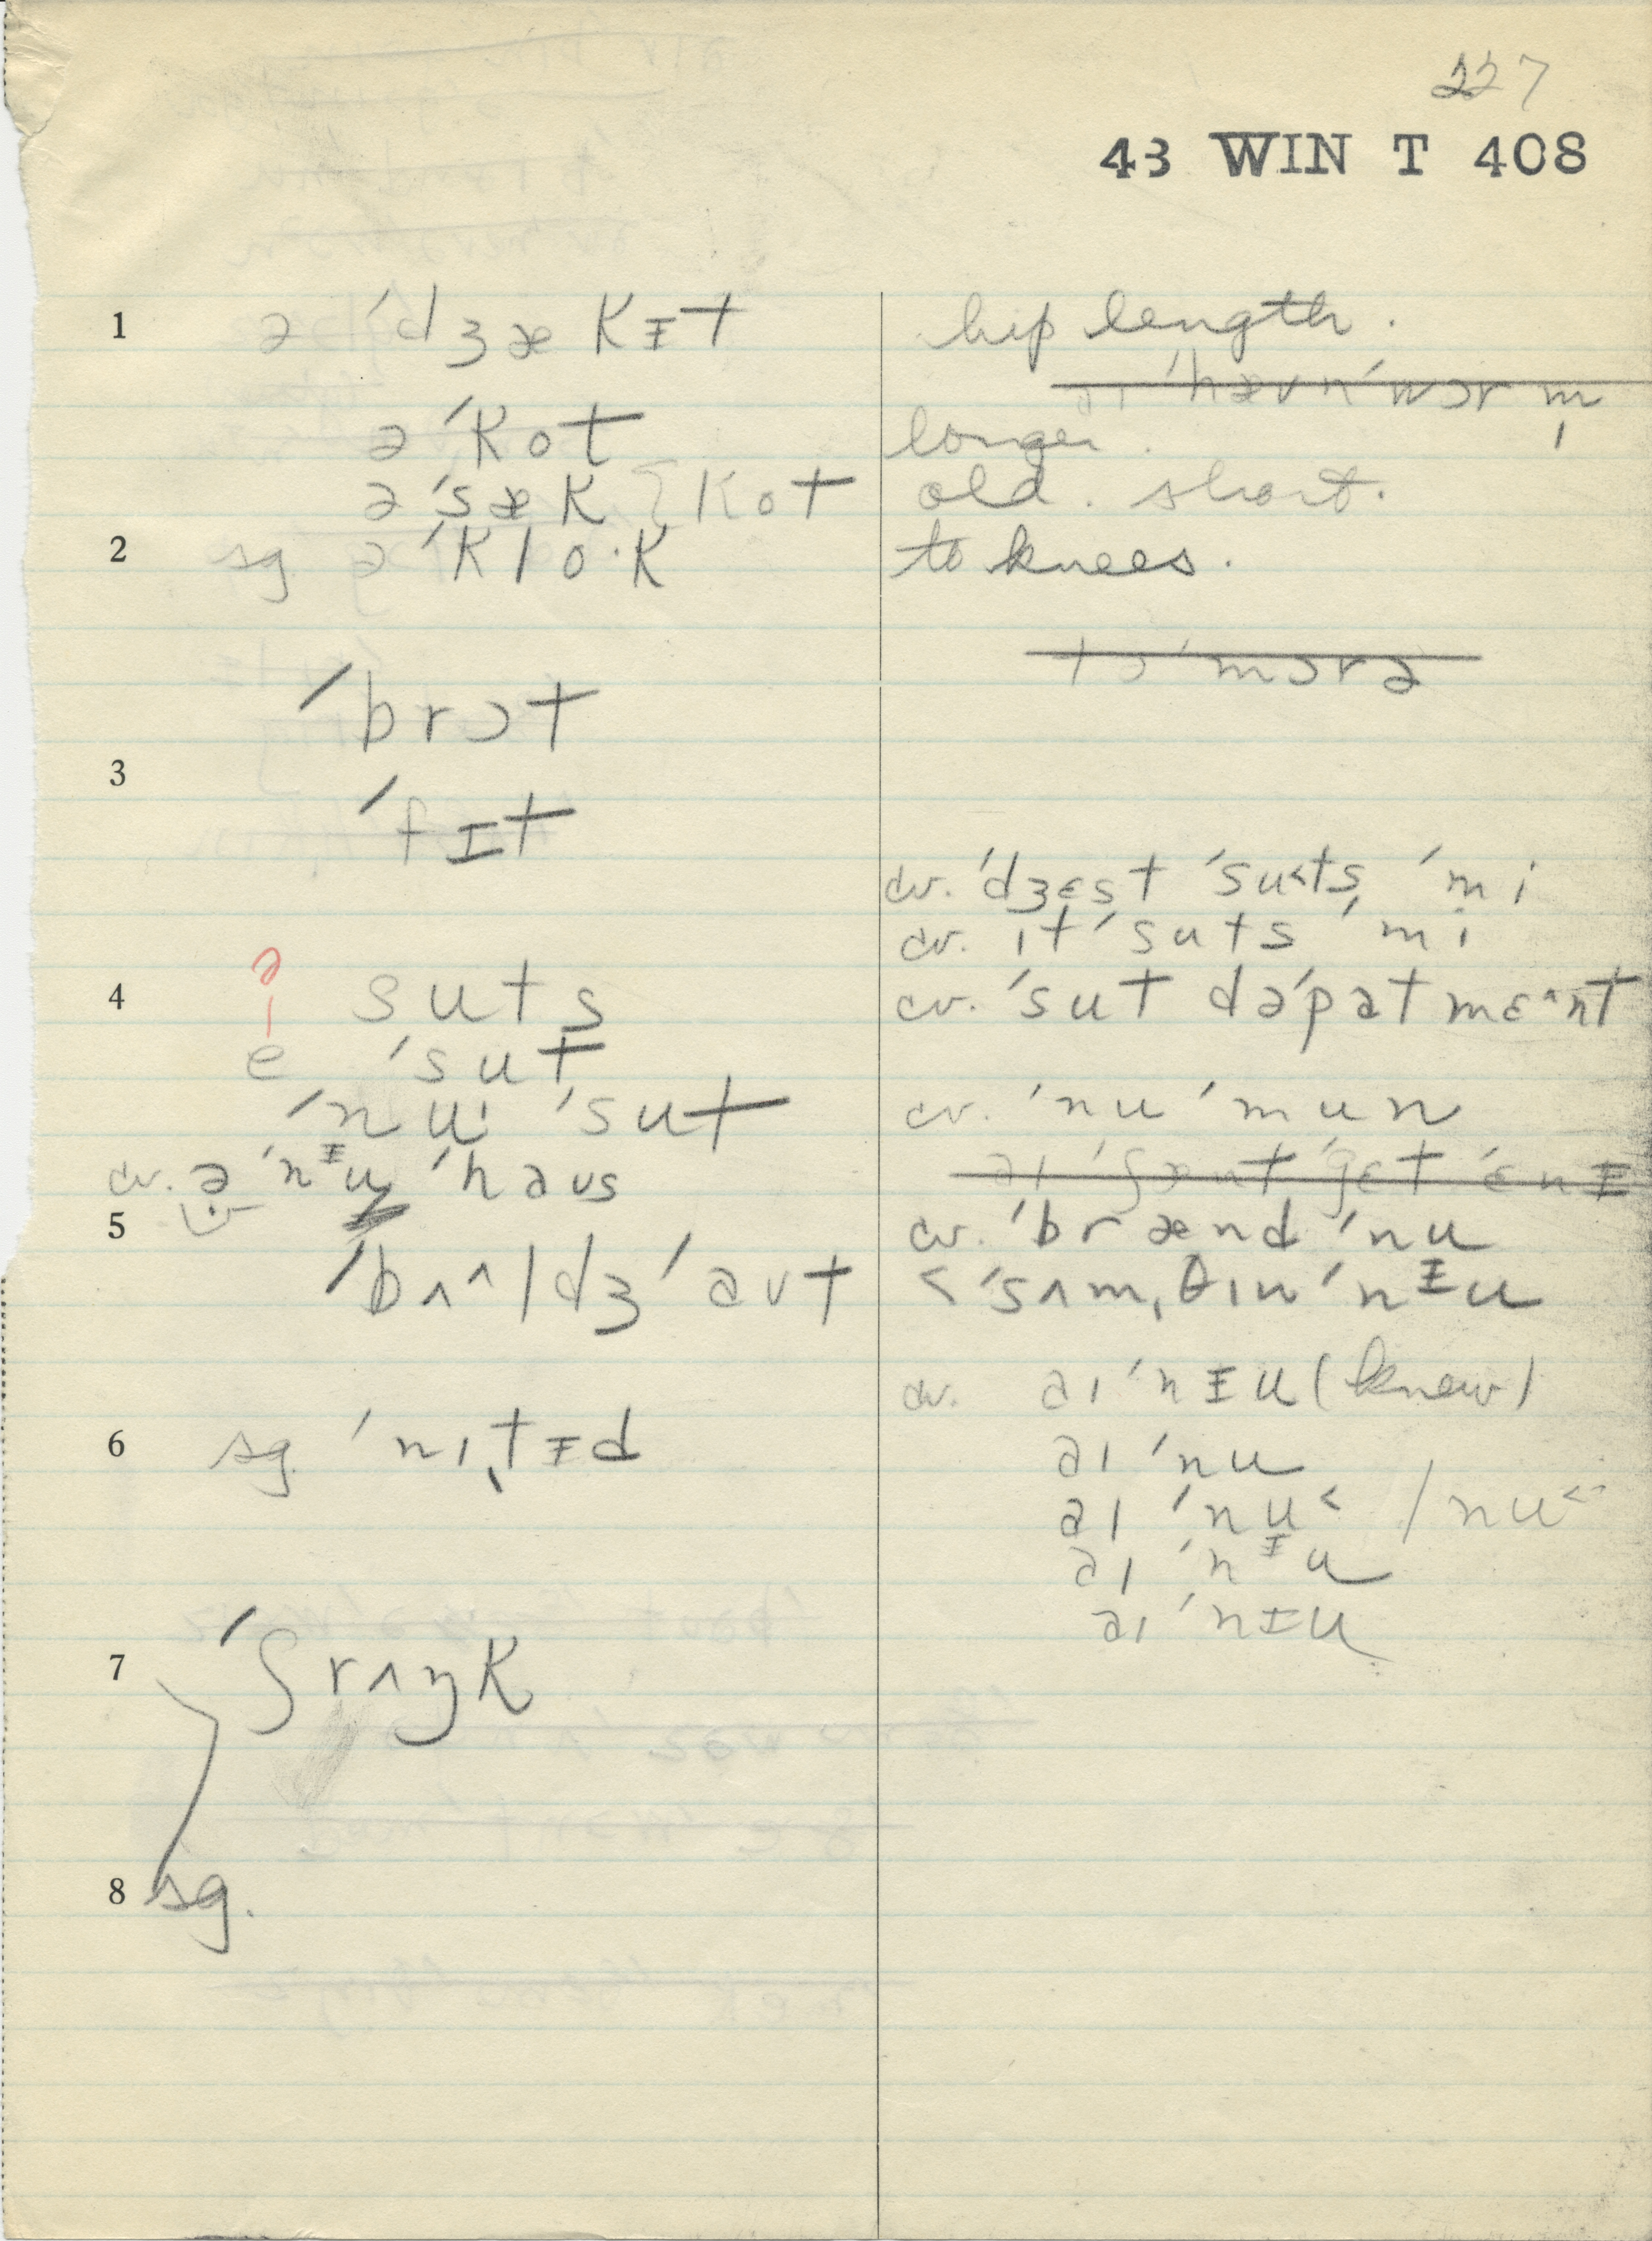 227
43 WIN T 408
1 ə ˈdʒækɪt hip length.
əˈkot longer.
əˈsæk } kot old. short.
2 sg əˈklo·k to knees.
təˈmɔrə
ˈbrɔt
3
ˈfɪt
cv. ˈdʒɛst ˈsu˂tsˌ ˈmi
cv. ɪtˈsuts ˈmi
ə
4 suts cv. ˈsut dəˈpatmɛ^nt
e ˈsut
ˈnu· ˈsut cv. ˈnu ˈmun
cv. ə ˈnᵻu ˈhaus
5 cv. ˈbrænd ˈnu
ˈbʌ^ldʒ ˈaut < ˈsʌmˌθɪŋ ˈnᵻu
cv. aɪ ˈnᵻu (knew)
6 sg. ˈniˌtɪd aɪ ˈnu
aɪ ˈnu˂ / nu˂
aɪ ˈnᵻu
aɪ ˈnɪu
7 ˈʃrʌŋk
8 sg.